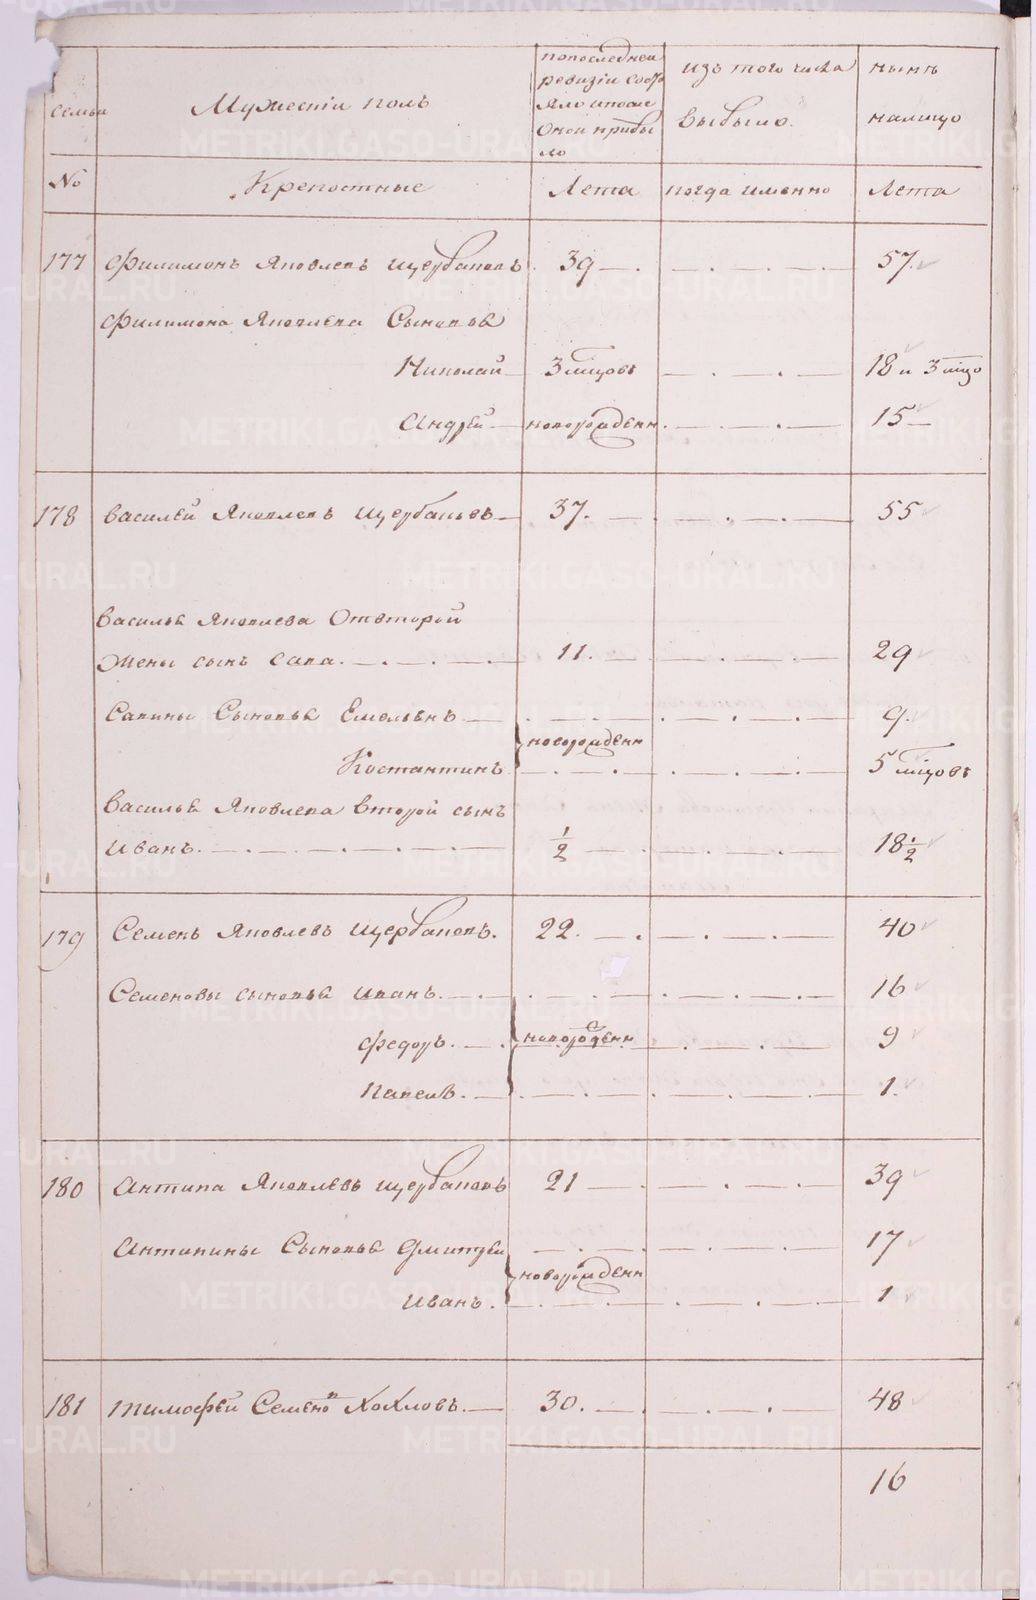 семьи
Мужескiй полъ
попоследней
ревизiи состо
яло ипосле
Оной прибы
ло
изъ того числа
выбыло.
нынъ
налицо
No
Крепостные
Лета
когда именно
Лета
177 Филимонъ Яковлевъ Щербаковъ. 39 57.
Филимона Яковлева Сыновья
Николай 3 мцовъ 18 и 3 мцо
Андрей новорожденн. 15
178 Василей Яковлевъ Щербаковъ 37. 55
Василья Яковлева Отвторой
Жены сынъ Сава. 11. 29
Савины Сыновья Емельянъ 9.
новорожденн
Костантинъ 5 мцовъ
Василья Яковлева второй сынъ
Иванъ. 1/2 18 1/2
179 Семенъ Яковлевъ Щербаковъ. 22. 40
Семеновы сыновья Иванъ. 16
Федоръ. новорожденн 9
Павелъ. 1.
180 Антипа Яковлевъ Щербаковъ 21 39
Антипины Сыновья Дмитрей 17
новорожденн
Иванъ. 1
181 Тимофей Семеновъ Хохловъ. 30. 48
16
METRIKI.GASO-URAL.RU